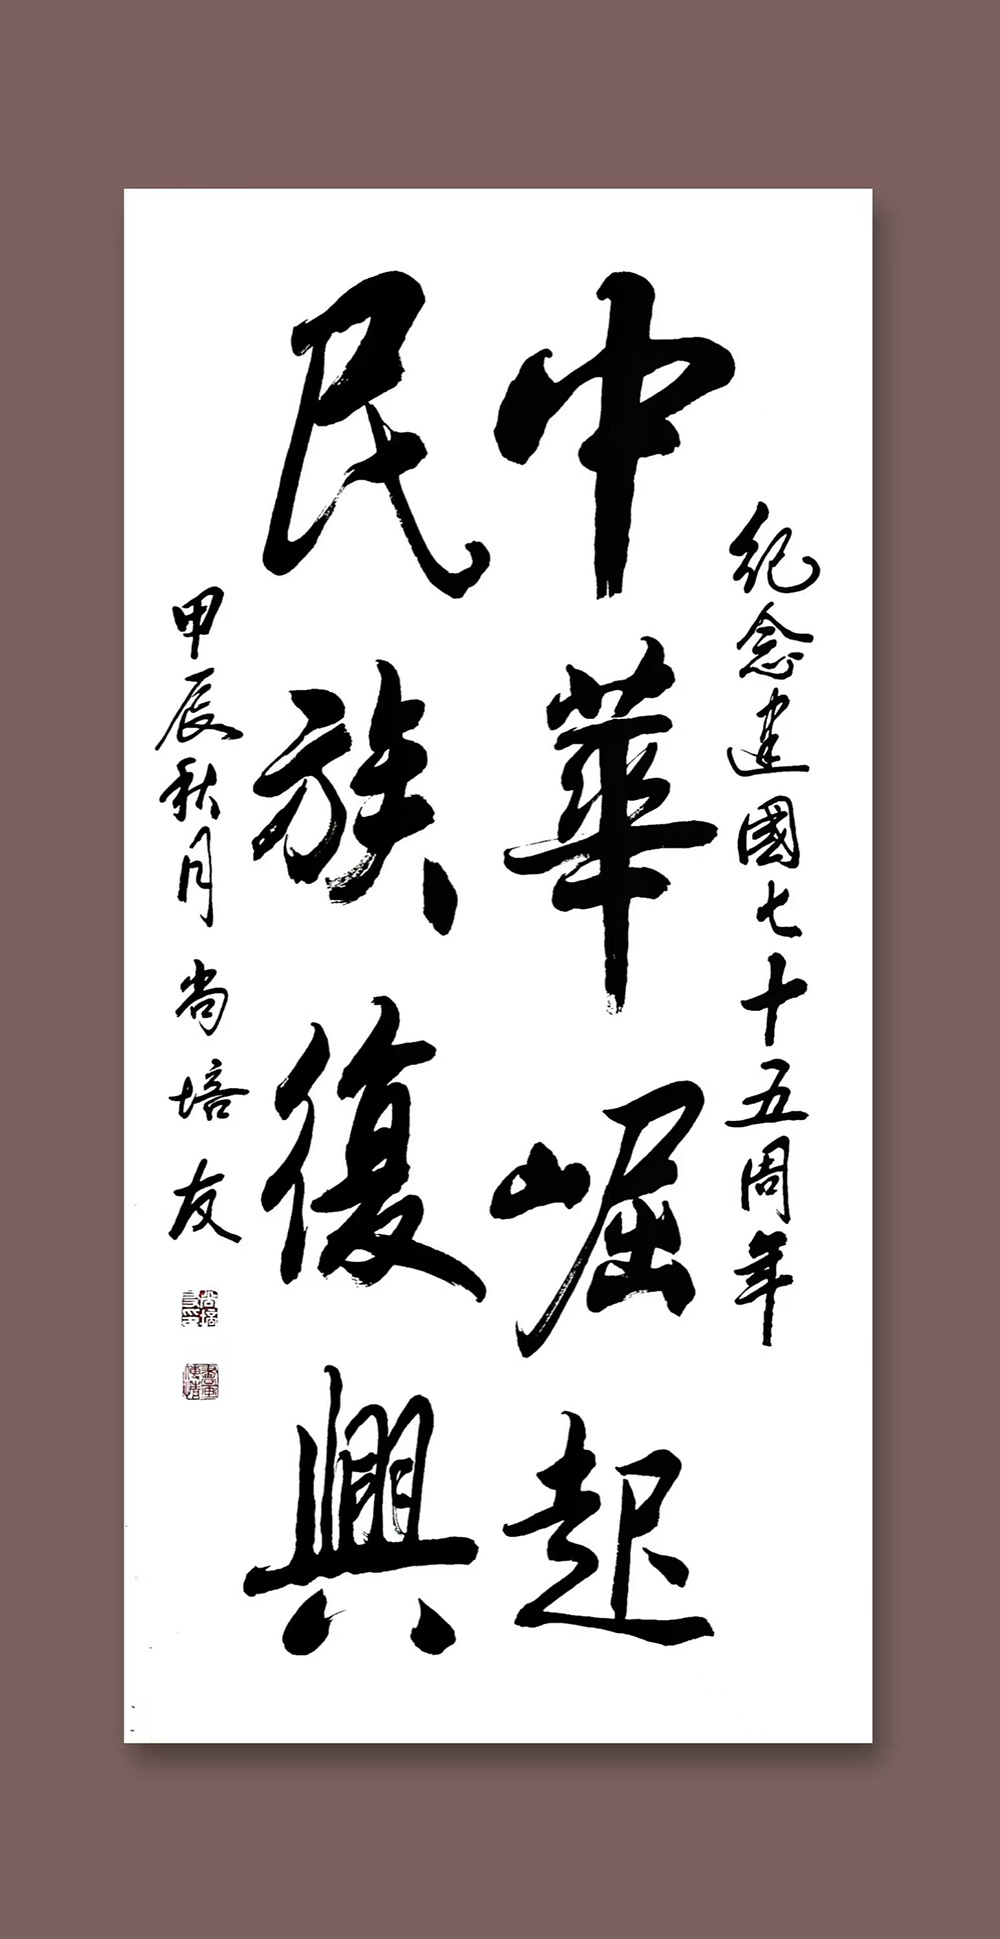 紀念建國七十五周年
中華崛起
民族復興
甲辰秋月 尚培友